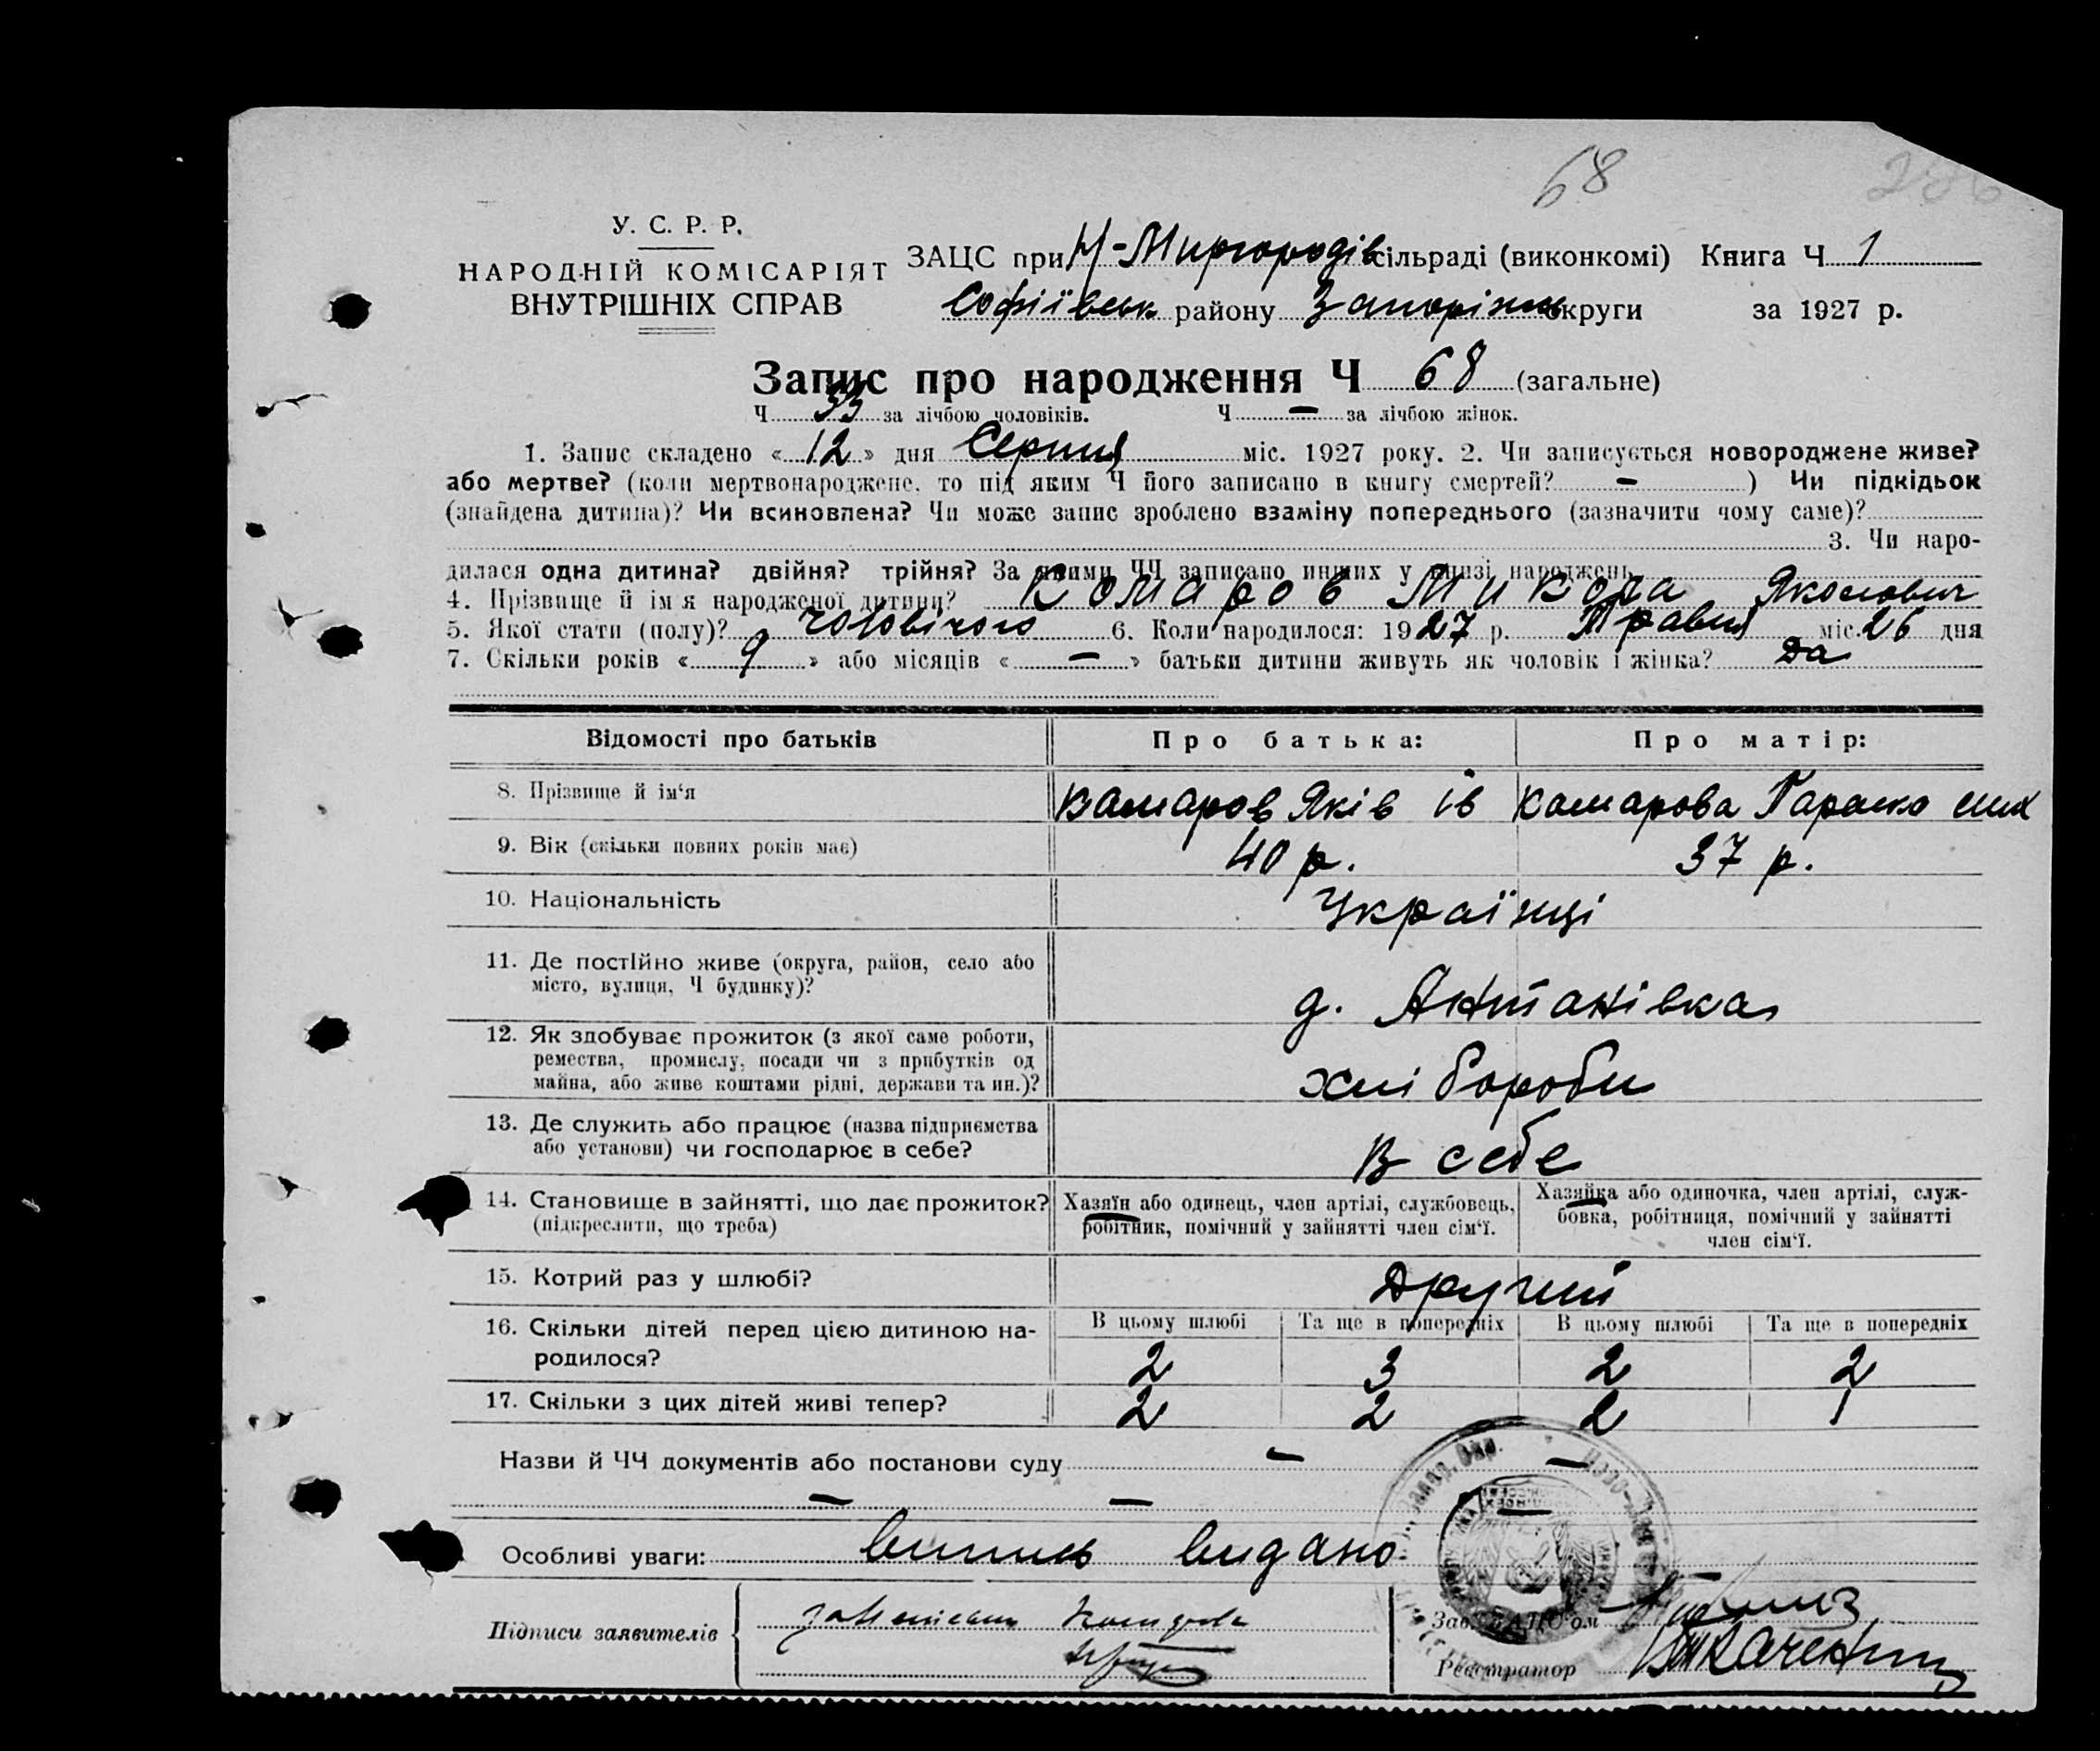 68
У. С. Р. Р.
НАРОДНІЙ КОМІСАРІЯТ
ВНУТРІШНІХ СПРАВ
ЗАЦС при Н-Миргородів сільраді (виконкомі) Книга Ч 1
Софіївськ району Запоріжь округи за 1927 р.
Запис про народження Ч 68 (загальне)
Ч 33 за лічбою чоловіків. Ч — за лічбою жінок.
1. Запис складено « 12 » дня Серпня міс. 1927 року. 2. Чи записується новороджене живе?
або мертве? (коли мертвонароджене, то під яким Ч його записано в книгу смертей? — ) Чи підкідьок
(знайдена дитина)? Чи всиновлена? Чи може запис зроблено взаміну попереднього (зазначити чому саме)?
3. Чи наро-
дилася одна дитина? двійня? трійня? За якими ЧЧ записано инших у книзі народжень
4. Прізвище й ім я народженої дитини? Комаров Микола Якович
5. Якої стати (полу)? чоловічого 6. Коли народилося: 1927 р. Травня міс. 26 дня
7. Скільки років « 9 » або місяців « — » батьки дитини живуть як чоловік і жінка? Да
Відомості про батьків Про батька: Про матір:
8. Прізвище й ім‘я Камаров Яків ів Камарова Параска
9. Вік (скільки повних років має) 40 р. 37 р.
10. Національність Українці
11. Де постійно живе (округа, район, село або
місто, вулиця, Ч будинку)? д. Антанівка
12. Як здобуває прожиток (з якої саме роботи,
ремества, промислу, посади чи з прибутків од
майна, або живе коштами рідні, держави та ин.)? хлібороби
13. Де служить або працює (назва підприємства
або установи) чи господарює в себе? В себе
14. Становище в зайнятті, що дає прожиток?
(підкреслити, що треба)
Хазяїн або одинець, член артілі, службовець,
робітник, помічний у зайнятті член сім‘ї.
Хазяйка або одиночка, член артілі, служ-
бовка, робітниця, помічний у зайнятті
член сім‘ї.
15. Котрий раз у шлюбі? Другий
16. Скільки дітей перед цією дитиною на-
родилося?
В цьому шлюбі Та ще в попередніх В цьому шлюбі Та ще в попередніх
2 3 2 2
17. Скільки з цих дітей живі тепер? 2 2 2 1
Назви й ЧЧ документів або постанови суду — —
— — —
Особливі уваги: випись видано
Підписи заявителів
Зав. ЗАЦС‘ом
Реєстратор